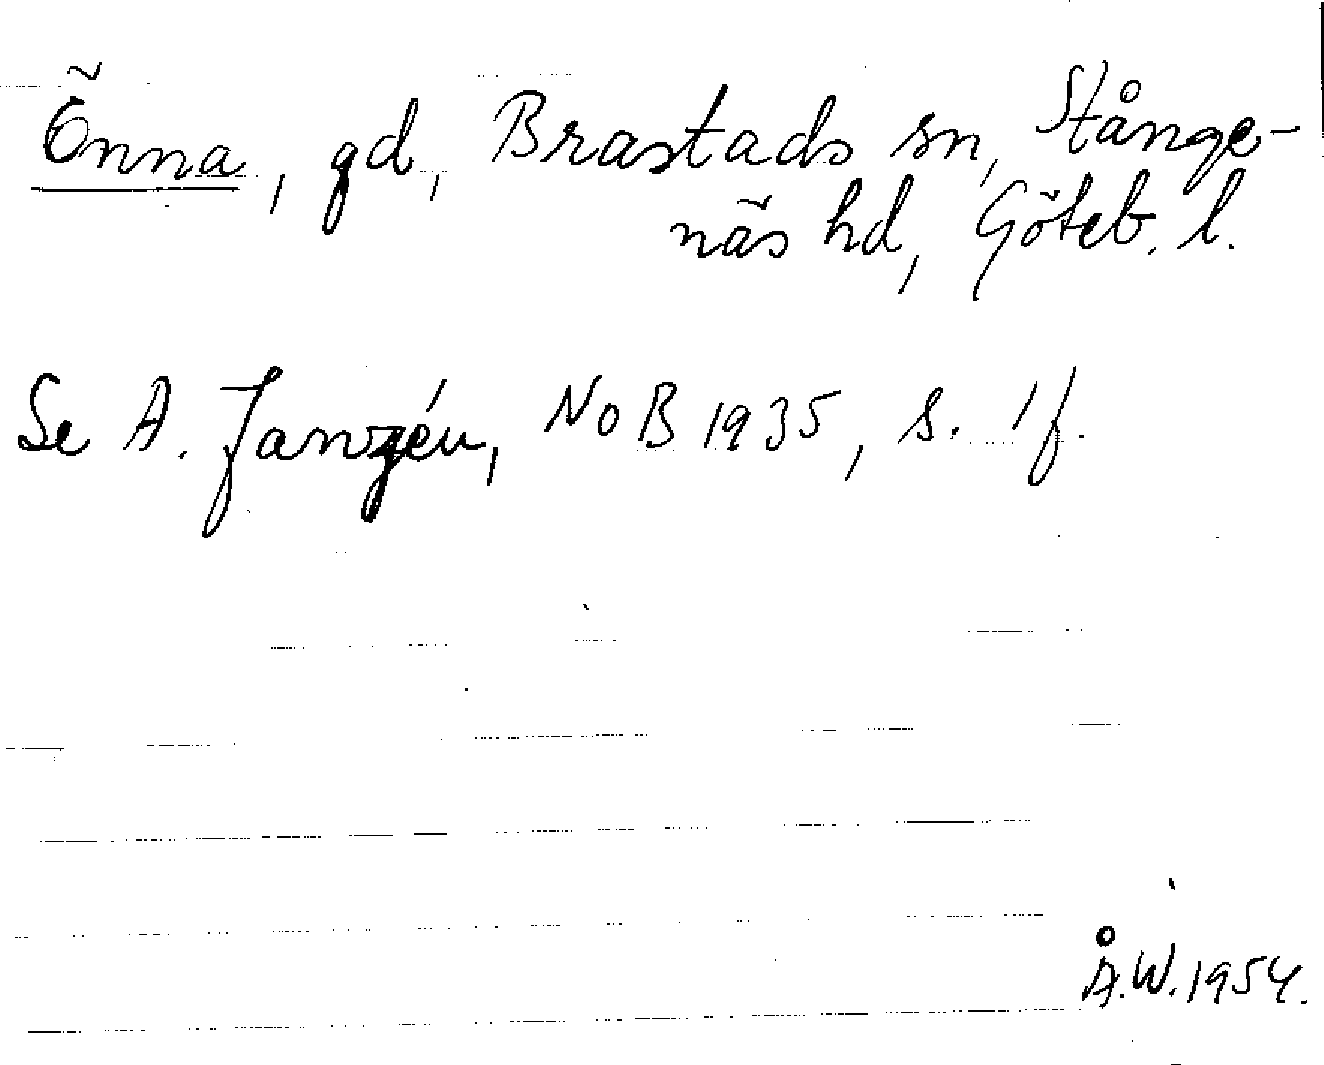 Önna, gd, Brastads sn, Stånge-
näs hd, Göteb. l.
Se A. Janzén, NoB 1935, s. 1f.
Å.W. 1954.